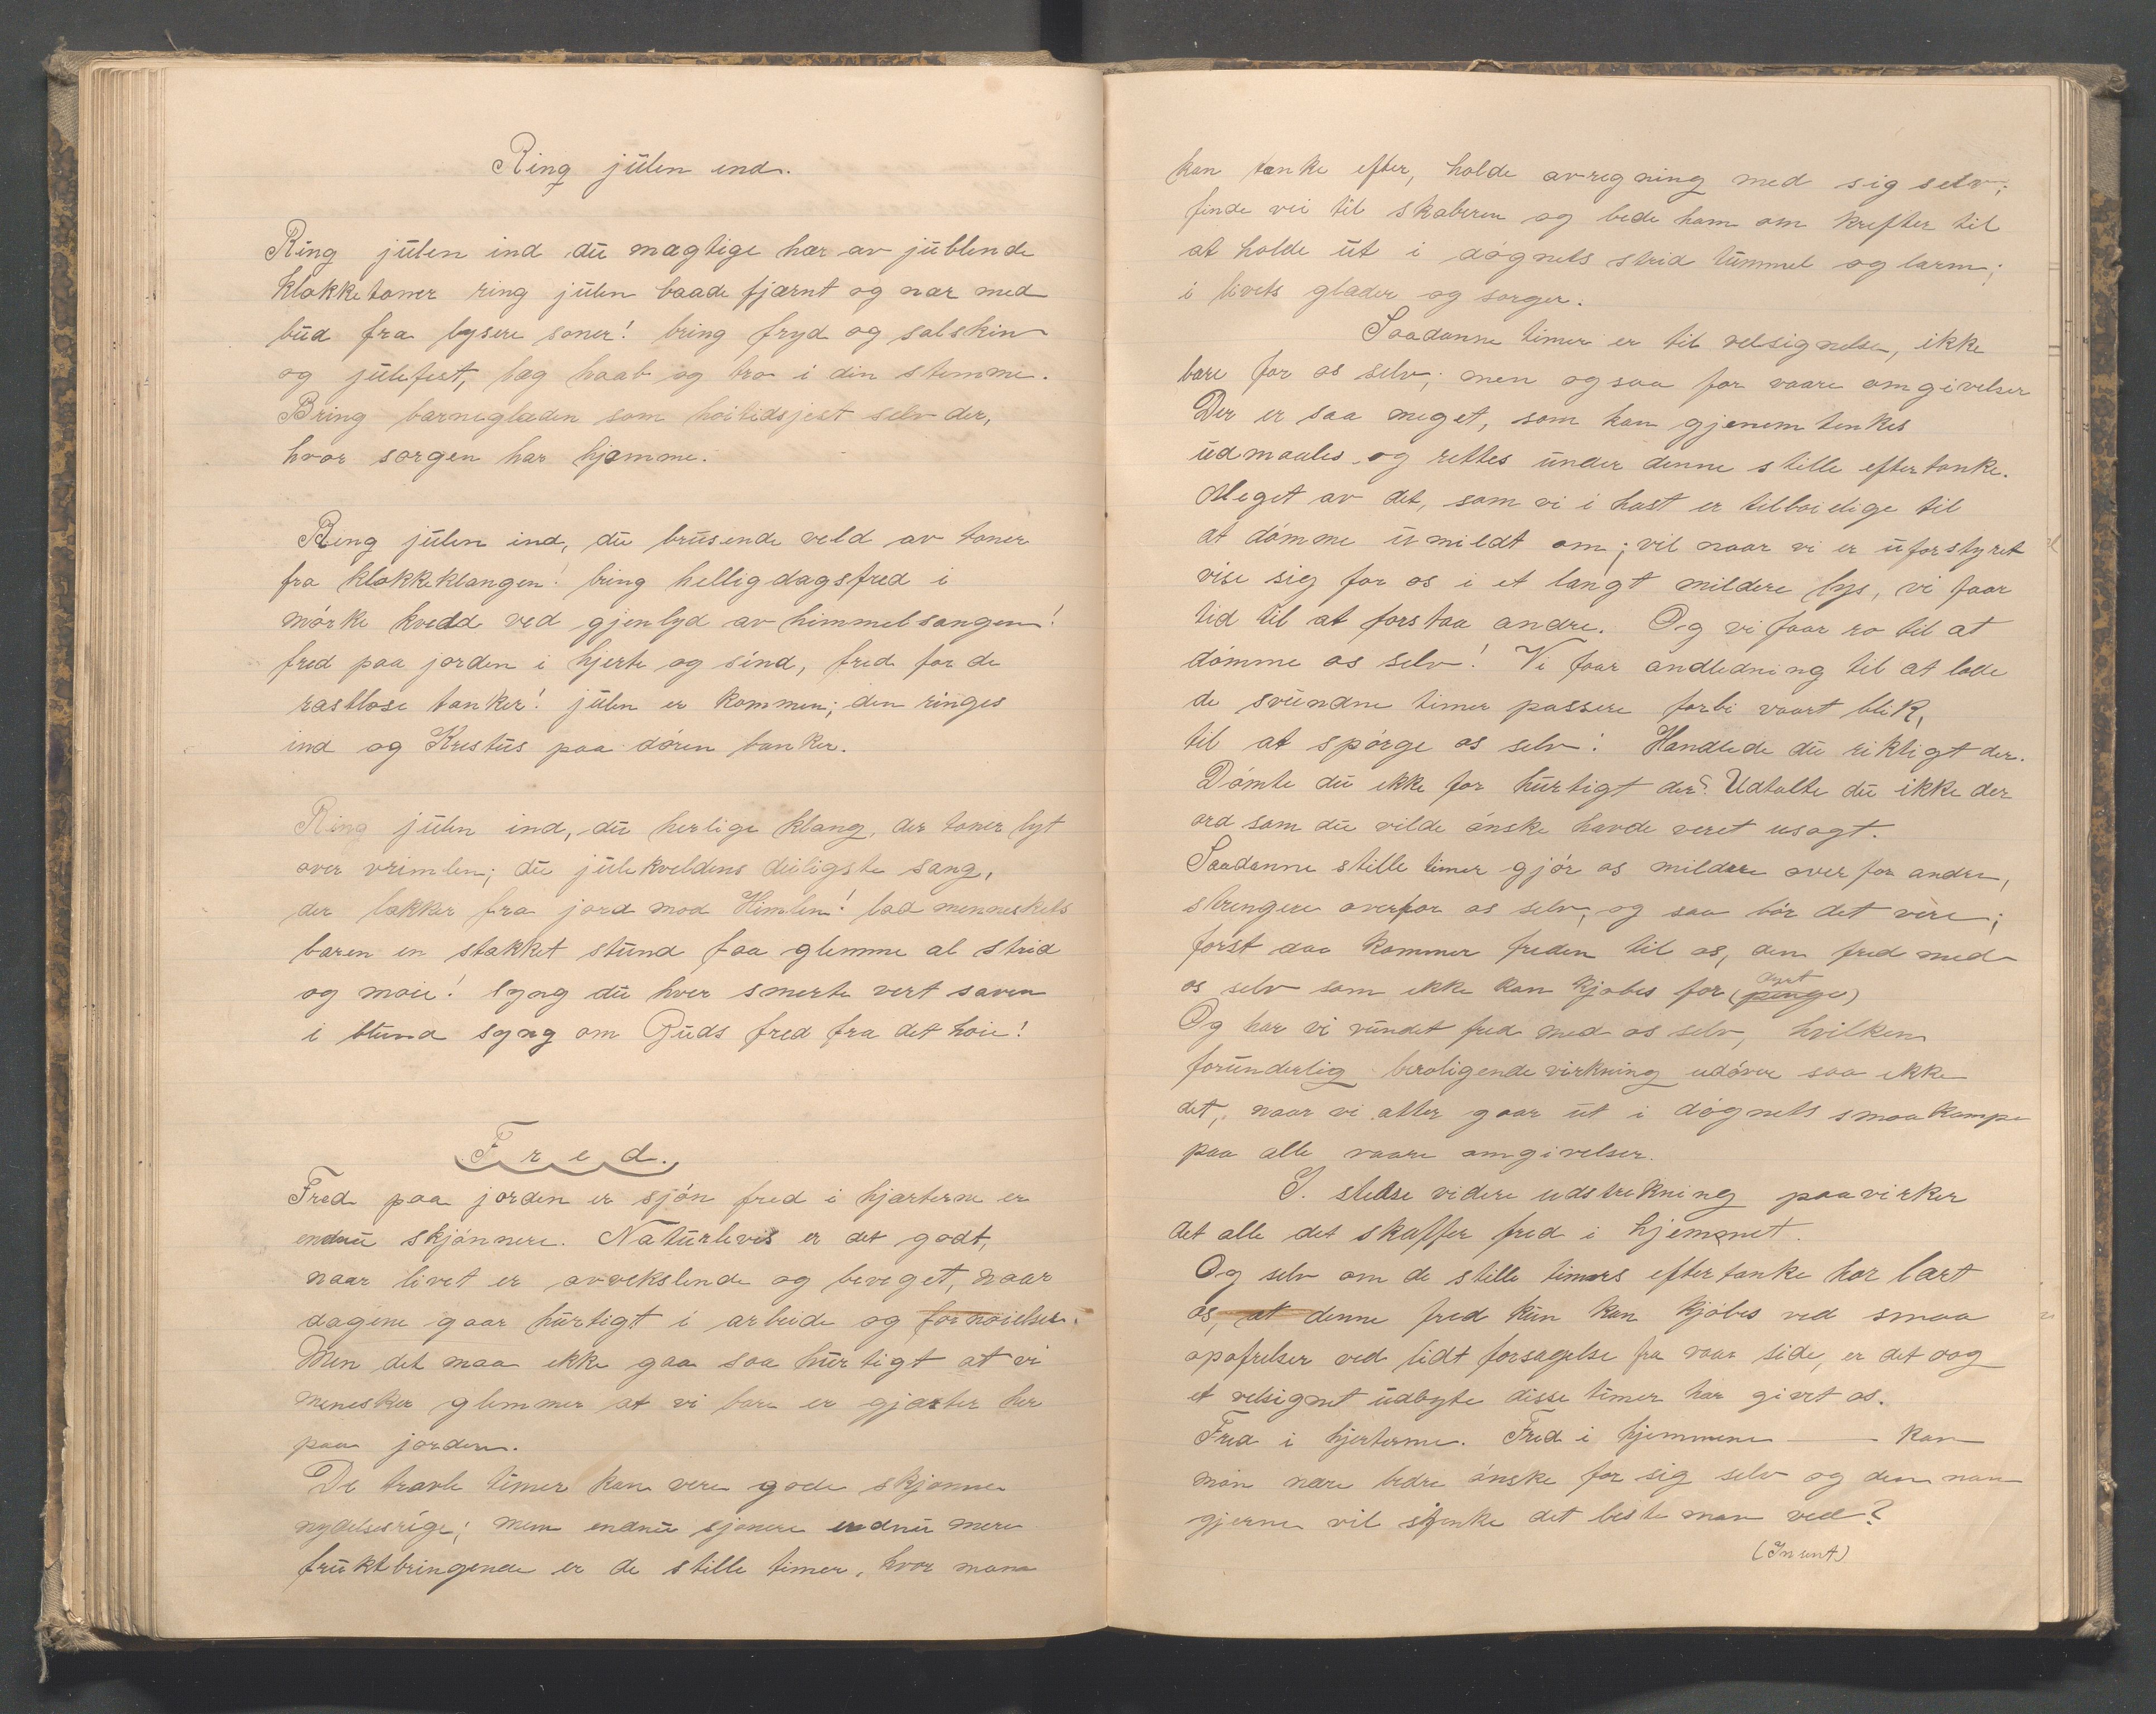 Ring julen end.
Ring julen ind du mægtige hær av jublende
klokketoner ring julen baade fjærnt og nær med
bud fra lysere soner! bring fryd og solskin
og julefest, læg haab og tro i din stemme.
Bring barneglæden som höitidsjest selv der,
hvor sorgen har hjemme.
Ring julen ind, du brusende veld av toner
fra klokkeklangen! bring helligdagsfred i
mörke kveld ved gjenlyd av himmelsangen!
fred paa jorden i hjerte og sind, fred for de
rastlose tanker! julen er kommen; den ringes
ind og Kristus paa dören banker.
Ring julen ind, du herlige klang, der toner lyt
over vrimlen; du julekveldens deiligste sang,
der lokker fra jord mod Himlen! lad menneskets
baren en stakket stund faa glemme al strid
og moie! syng du hver smerte vert savn
i blund syng om Guds fred fra det hoie!
Fred.
Fred paa jorden er sjön fred i hjærterne er
endnu skjönnere. Naturlevis er det godt,
naar livet er avvekslende og beveget, naar
dagene gaar hurtigt i arbeide og fornoielser.
Men det maa ikke gaa saa hurtigt at vi
menesker glemmer at vi bare er gjæster her
paa jorden.
De travle timer kan vere gode skjonne
nydelsesrige; men endnu sjonere endnu mere
fruktbringende er de stille timer, hvor man
kan tænke efter, holde avregning med sig selv;
finde vei til skaberen og bede ham om krefter til
at holde ut i dögnets strid tummel og larm;
i livets glæder og sorger.
Saadanne timer er til velsignelse, ikke
bare for os selv; men ogsaa for vaare omgivelser
Der er saa meget, som kan gjenem tenkes
udmaales og rettes under denne stille eftertanke.
Meget av det, som vi i hast er tilboidige til
at dömme umildt om; vil naar vi er uforstyret
vise sig for os i et langt mildere lys, vi faar
tid til at forstaa andre. Og vi faar ro til at
dömme os selv! Vi faar andledning til at lade
de svundne timer passere forbi vaart blik,
til at spörge os selv: Handlede du riktigt der.
Dömte du ikke for hurtigt der? Udtalte du ikke der
ord som du vilde önske havde veret usagt.
Saadanne stille timer gjör os mildere over for andre,
strengere overfor os selv, og saa bör det vere;
forst daa kommer freden til os, den fred med
os selv som ikke kan kjobes for (penge) dyrt
Og har vi vundet fred med os selv, hvilken
forunderlig beroligende virkning udöver saa ikke
det, naar vi atter gaar ut i dögnets smaakampe
paa alle vaare omgivelser.
I stedse videre udstrekning paavirker
det alle det skaffer fred i hjemmet.
Og selv om de stille timers eftertanke har lært
os, at denne fred kun kan kjöbes ved smaa
opofrelser ved lidt forsagelse fra vaar side, er det dog
et velsignet udbyte disse timer har givet os.
Fred i hjerterne. Fred i hjemmene — kan
man nære bedre önske for sig selv og dem man
gjerne vil skjenke det beste man ved?
(Insent)